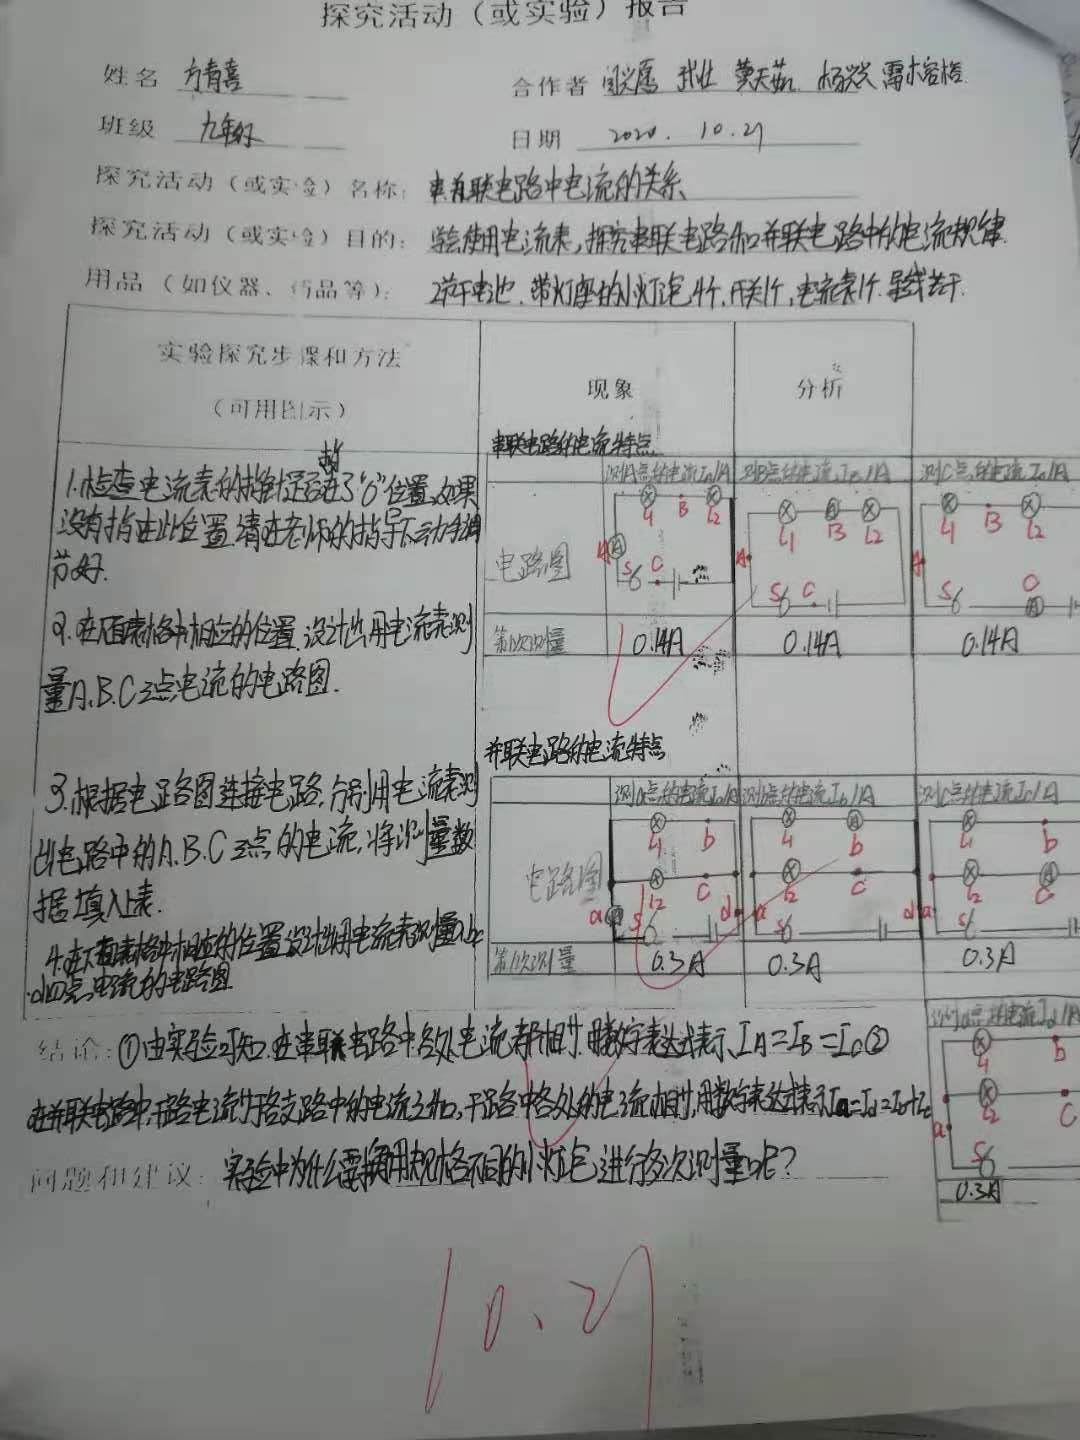 探究活动（或实验）报告
姓名 方青喜 合作者 张壮
班级 日期 2020. 10.27
探究活动（或实验）名称： 串并联电路中电流的关系
探究活动（或实验）目的： 学会使用电流表，探究串联电路和并联电路中的电流规律
用品（如仪器、药品等）： 2节干电池、带灯座的小灯泡4个，开关1个，电流表1个，导线若干.
实验探究步骤和方法
（可用图示）
现象
分析
1.检查电流表的指针是否在了“0”位置，如果
没有指在此位置，请在老师的指导下动手调
节好.
2.在下面表格中相应的位置，设计出用电流表测
量A、B、C三点电流的电路图.
3.根据电路图连接电路，分别用电流表测
出电路中的A、B、C三点的电流，将测量数
据填入上表.
4.在下面表格中相应的位置设计出用电流表测量abc
d四点电流的电路图
串联电路的电流特点
测A点的电流IA/A 测B点的电流IB/A 测C点的电流IC/A
电路图
L1 B L2 L1 B L2 L1 B L2
A A A
S C S C S C
第1次测量 0.14A 0.14A 0.14A
并联电路的电流特点
测a点的电流Ia/A 测b点的电流Ib/A 测c点的电流Ic/A
电路图
L1 b L1 b L1 b
L2 c L2 c L2 c
a S d a S d a S
第1次测量 0.3A 0.3A 0.3A
测d点的电流Id/A
L1 b
L2 c
a
S
0.3A
结论：①由实验可知，在串联电路中各处电流都相等，用数字表达式表示，IA=IB=IC②
在并联电路中，干路电流等于各支路中的电流之和，干路中各处的电流相等，用数字表达式表示Ia=Id=Ib+Ic
问题和建议： 实验中为什么要换用规格不同的小灯泡，进行多次测量呢？
10.27